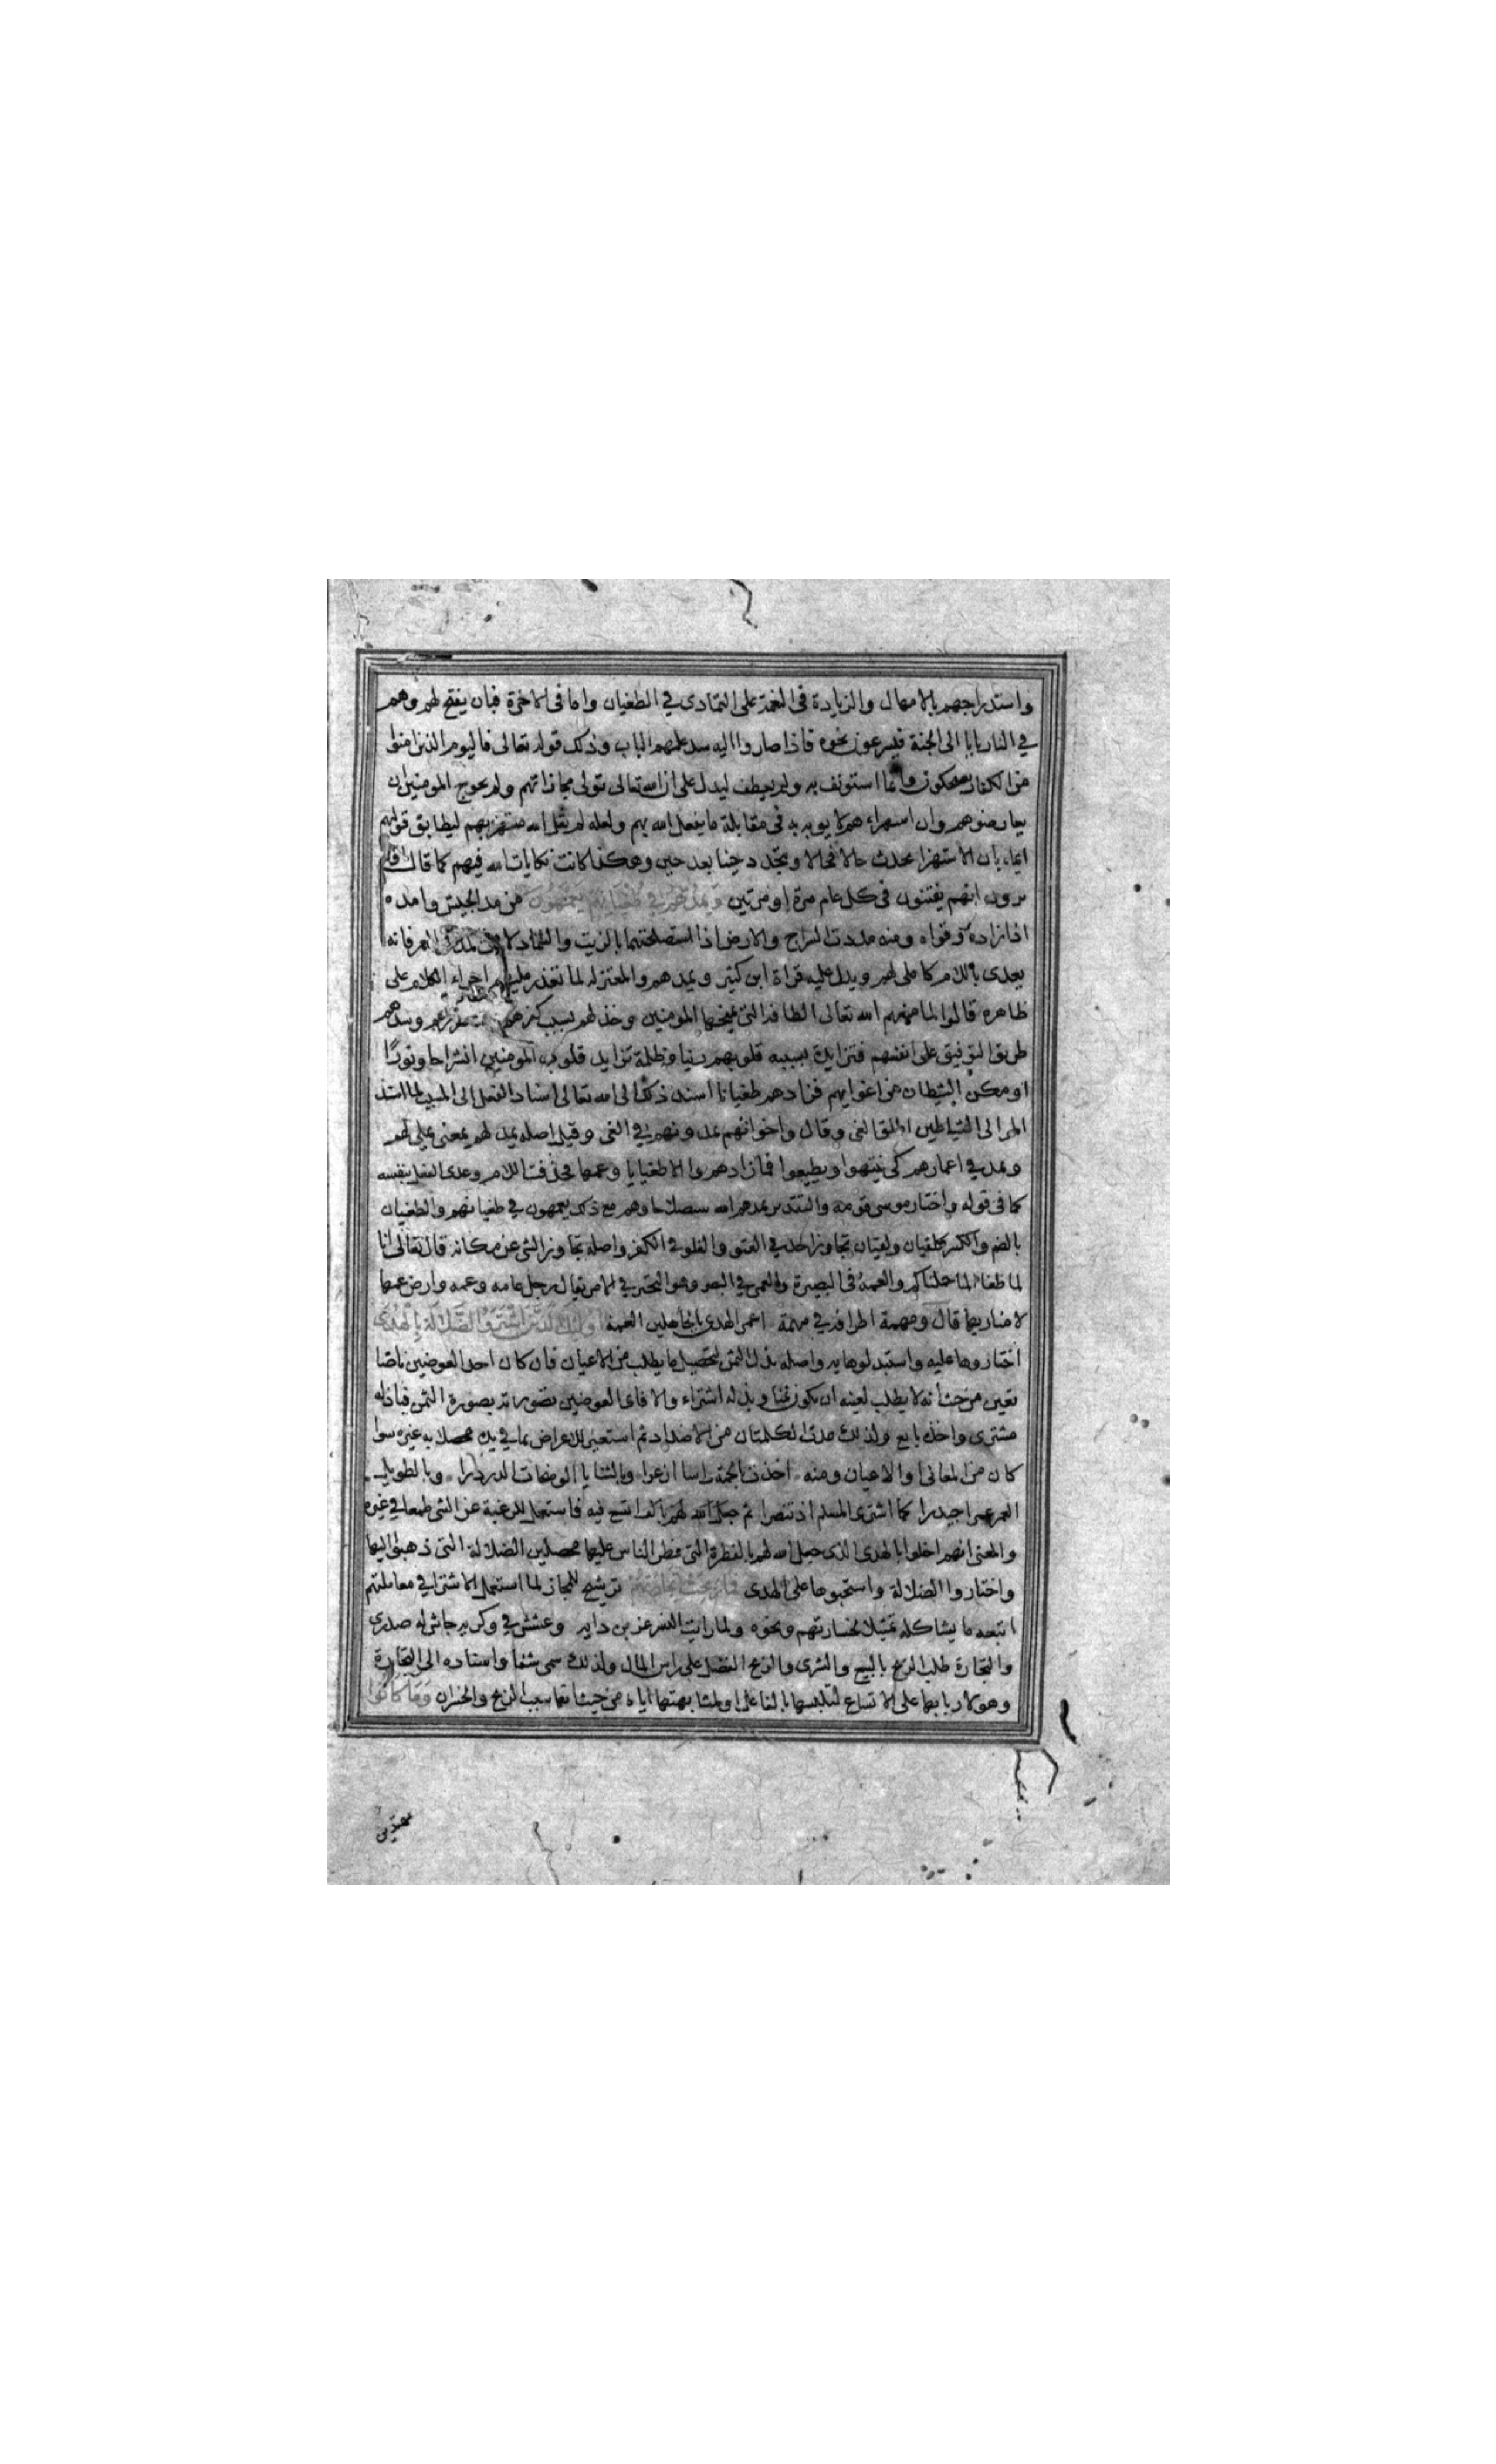 واستدراجهم بالامهال والزيادة فى النعمة على التمادى في الطغيان واما فى الاخرة فبان يفتح لهم وهم
في النار بابا الى الجنة فيسرعون نحوه فاذا صاروا اليه سد عليهم الباب وذلك قوله تعالى فاليوم الذين امنوا
من الكفار يضحكون وانما استونف به ولم يعطف ليدل على ان الله تعالى تولى مجازاتهم ولم يحوج المومنين ان
يعارضوهم وان استهزاءهم لا يوبه به فى مقابلة ما يفعل الله بهم ولعله لم يقل الله مستهزئ بهم ليطابق قولهم
ايماء بان الاستهزا يحدث حالا فحالا ويتجدد حينا بعد حين وهكذا كانت نكايات الله فيهم كما قال
يرون انهم يفتنون فى كل عام مرة او مرتين ويمدهم في طغيانهم يعمهون من مد الجيش وامده
اذا زاده وقواه ومنه مددت السراج والارض اذا استصلحتهما بالزيت والسماد لا من المد في العمر فانه
يعدى باللام كاملى لهم ويدل عليه قراة ابن كثير ويمدهم والمعتزلة لما تعذر عليهم اجراء الكلام على
ظاهره قالوا لما منعهم الله تعالى الطافه التى يمنحها المومنين وخذلهم بسبب كفرهم وسدهم
طريق التوفيق على انفسهم فتزايدت بسببه قلوبهم رينا وظلمة تزايد قلوب المومنين انشراحا ونورًا
او مكن الشيطان من اغوايهم فزادهم طغيانا اسند ذلك الى الله تعالى اسناد الفعل الى المسبب لما اسند
المد الى الشياطين اطلق الغى وقال واخوانهم يمدونهم في الغى وقيل اصله يمد لهم بمعنى يملي لهم
ويمد في اعمارهم كى ينتبهوا ويطيعوا فما زادوا الا طغيانا وعمها فحذفت اللام وعدى الفعل بنفسه
كما فى قوله واختار موسى قومه والتقدير يمدهم الله استصلاحا وهم مع ذلك يعمهون في طغيانهم والطغيان
بالضم والكسر كلقيان ولقيان تجاوز الحد في العتو والغلو في الكفر واصله تجاوز الشى عن مكانه قال تعالى انا
لما طغا الما حملناكم والعمه فى البصيرة والعمى في البصر وهو التحير في الامر يقال رجل عامه وعمه وارض عمها
لا منار بها قال ومهمة اطرافه في مهمة اعمى الهدى بالجاهلين العمه اولئك الذين اشتروا الضلالة بالهدى
اختاروها عليه واستبدلوها به واصله بذل الثمن لتحصيل ما يطلب من الاعيان فان كان احد العوضين ناضا
تعين من حيث انه لا يطلب لعينه ان يكون ثمنا وبذله اشتراء والا فاى العوضين تصورته بصورة الثمن فباذله
مشترى واخذه بايع ولذلك عدت الكلمتان من الاضداد ثم استعير للاعراض عما في يده محصلا به غيره سوا
كان من المعانى او الاعيان ومنه اخذت بالجمة راسا ازعرا وبالثنايا الواضحات الدردرا وبالطويل
العمر عمرا جيدرا كما اشترى المسلم اذ تنصرا ثم اتسع فيه فاستعمل للرغبة عن الشى طمعا في غيره
والمعنى انهم اخلوا بالهدى الذى جعل الله لهم بالفطرة التى فطر الناس عليها محصلين الضلالة التى ذهبوا اليها
واختاروا الضلالة واستحبوها على الهدى فما ربحت تجارتهم ترشيح للمجاز لما استعمل الاشترا في معاملتهم
اتبعه ما يشاكله تمثيلا لخسارتهم ونحوه ولما رايت النسر عز بن داية وعشش في وكريه جاش له صدرى
والتجارة طلب الربح بالبيع والشرى والربح الفضل على راس المال ولذلك سمى شفا واسناده الى التجارة
وهو لاربابها على الاتساع لتلبسها بالفاعل او لمشابهتها اياه من حيث انها سبب الربح والخسران وما كانوا
مهتدين